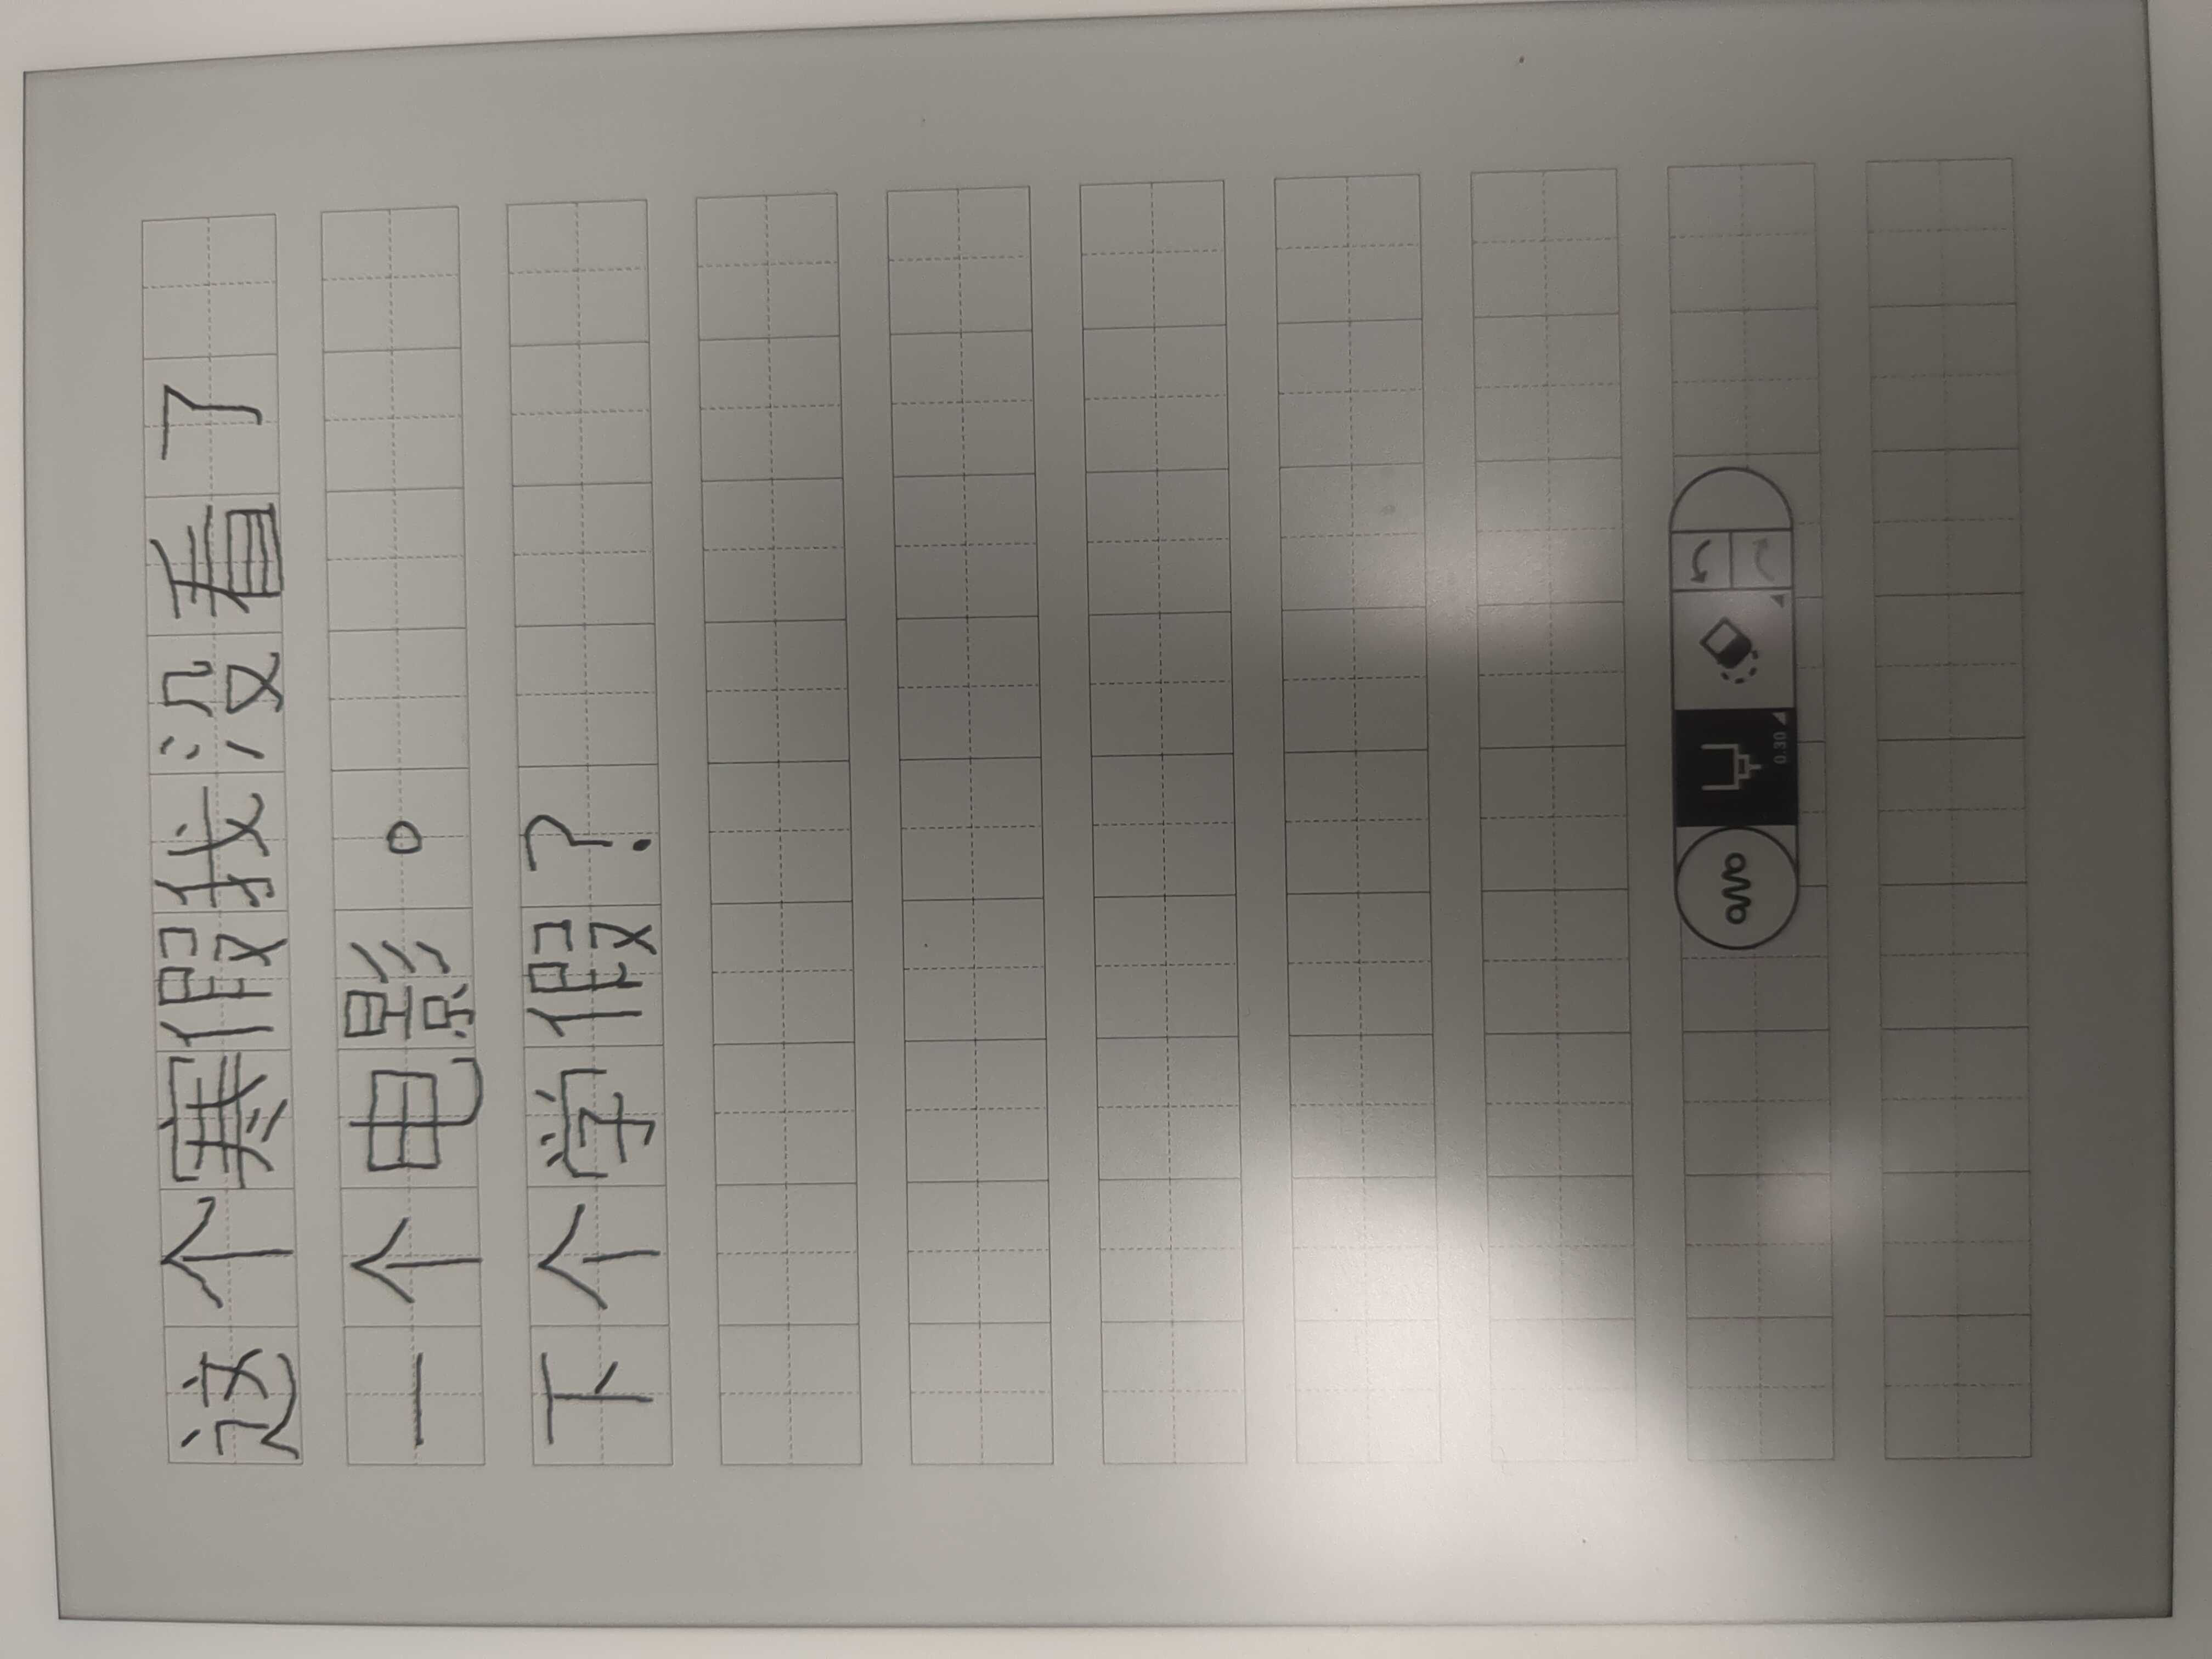 这个寒假我没看了
一个电影。
下个学假?
0.30